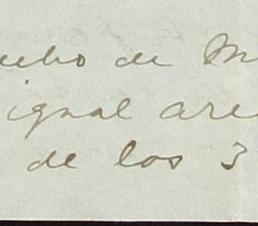 de M
igual are
de los 3